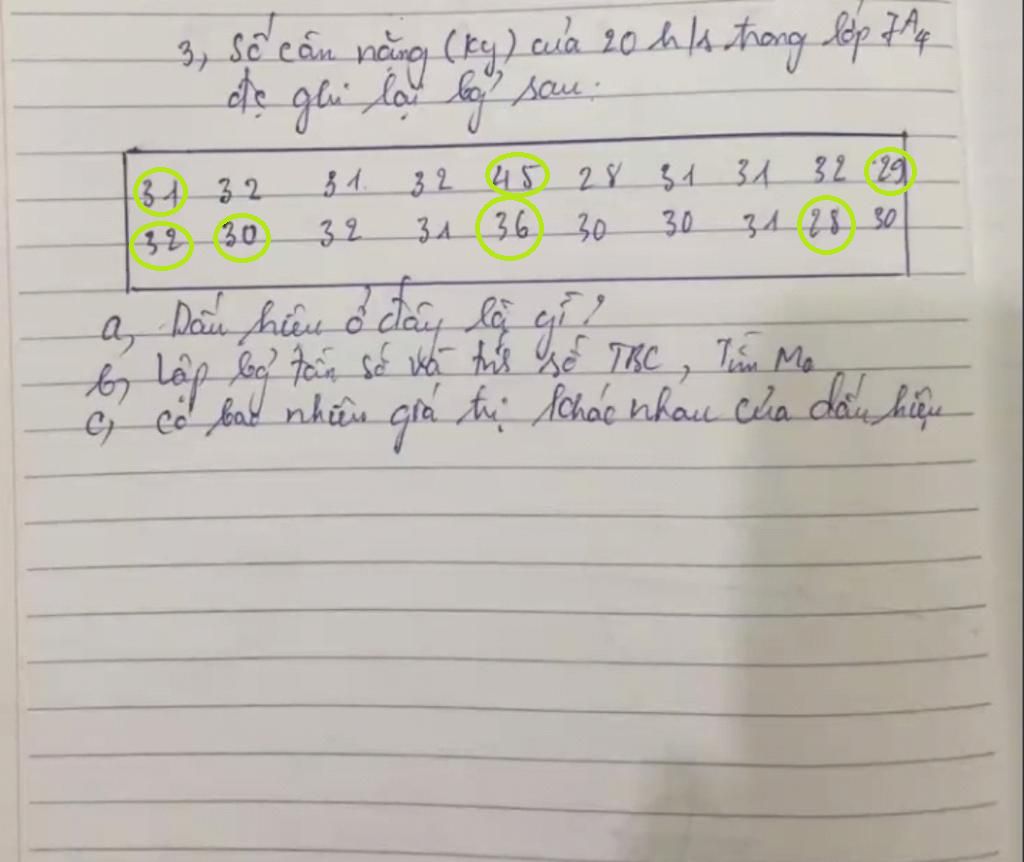 3, Số cân nặng (kg) của 20 h/s trong lớp 7A4
đc ghi lại bở sau:
31 32 31 32 45 28 31 31 32 29
32 30 32 31 36 30 30 31 28 30
a, Dấu hiệu ở đây là gì?
b, Lập bở tần số và tính số TBC, Tìm Mo
c, có bao nhiêu giá trị khác nhau của dấu hiệu